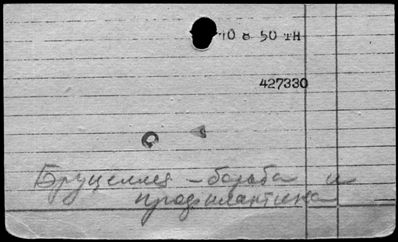 10 8 50 TH
427330
Бруцеллез - борьба и
профилактика